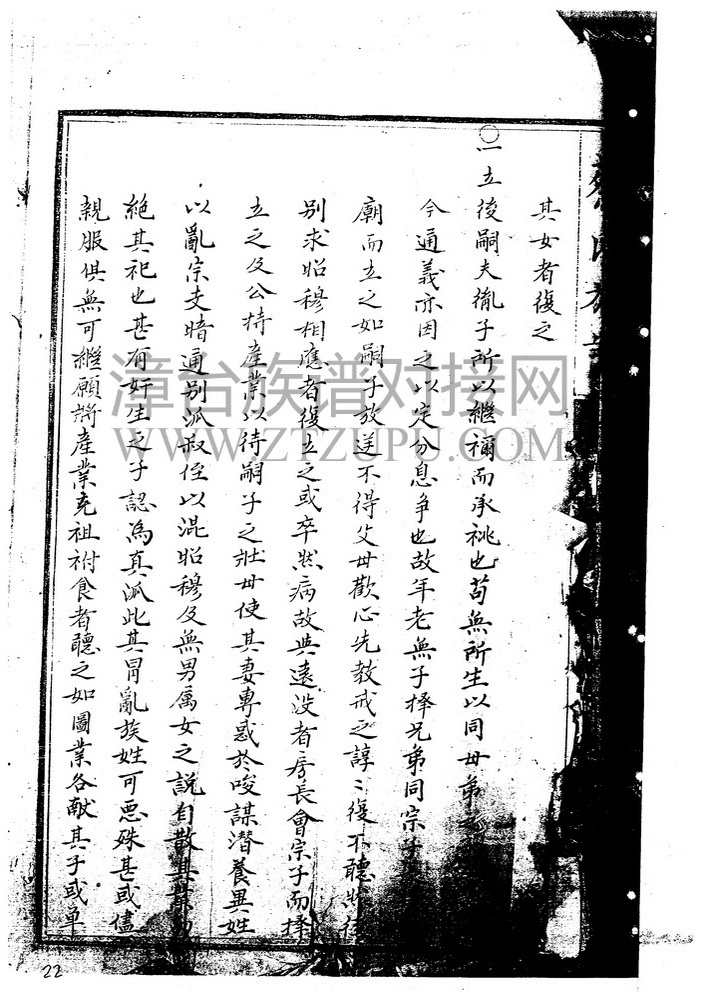 其女者復之
○一立後嗣夫胤子所以繼禰而承祧也苟無所生以同毋弟
今通義亦因之以定分息争也故年老無子擇兄弟同宗子
廟而立之如嗣子放逆不得父毋歡心先教戒之諄〻復不聽
別求昭穆相應者復立之或卒然病故與遠没者房長會宗子而擇
立之及公持產業以待嗣子之壯毋使其妻專惑於唆謀潜養異姓
以亂宗支暗通別派叔侄以混昭穆及無男属女之說自散其
絶其祀也甚有奸生之子認為真派此其冐亂族姓可惡殊甚或儘
親服俱無可繼願將產業充祖祔食者聽之如圖業各献其子或单
漳台族谱对接网
WWW.ZTZUPU.COM
22